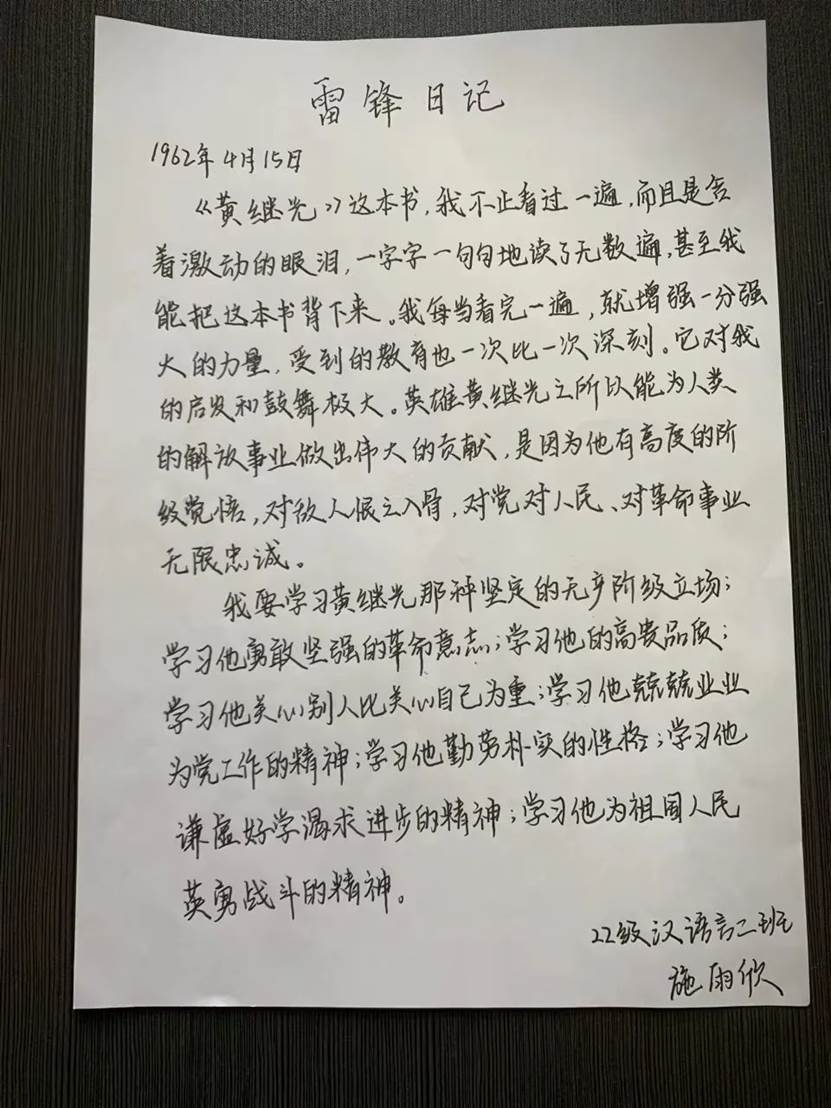 雷锋日记
1962年4月15日
《黄继光》这本书，我不止看过一遍，而且是含
着激动的眼泪，一字字一句句地读了无数遍，甚至我
能把这本书背下来。我每当看完一遍，就增强一分强
大的力量，受到的教育也一次比一次深刻。它对我
的启发和鼓舞极大。英雄黄继光之所以能为人类
的解放事业做出伟大的贡献，是因为他有高度的阶
级觉悟，对敌人恨之入骨，对党对人民、对革命事业
无限忠诚。
我要学习黄继光那种坚定的无产阶级立场；
学习他勇敢坚强的革命意志；学习他的高贵品质；
学习他关心别人比关心自己为重；学习他兢兢业业
为党工作的精神；学习他勤劳朴实的性格；学习他
谦虚好学渴求进步的精神；学习他为祖国人民
英勇战斗的精神。
22级汉语言二班
施雨欣